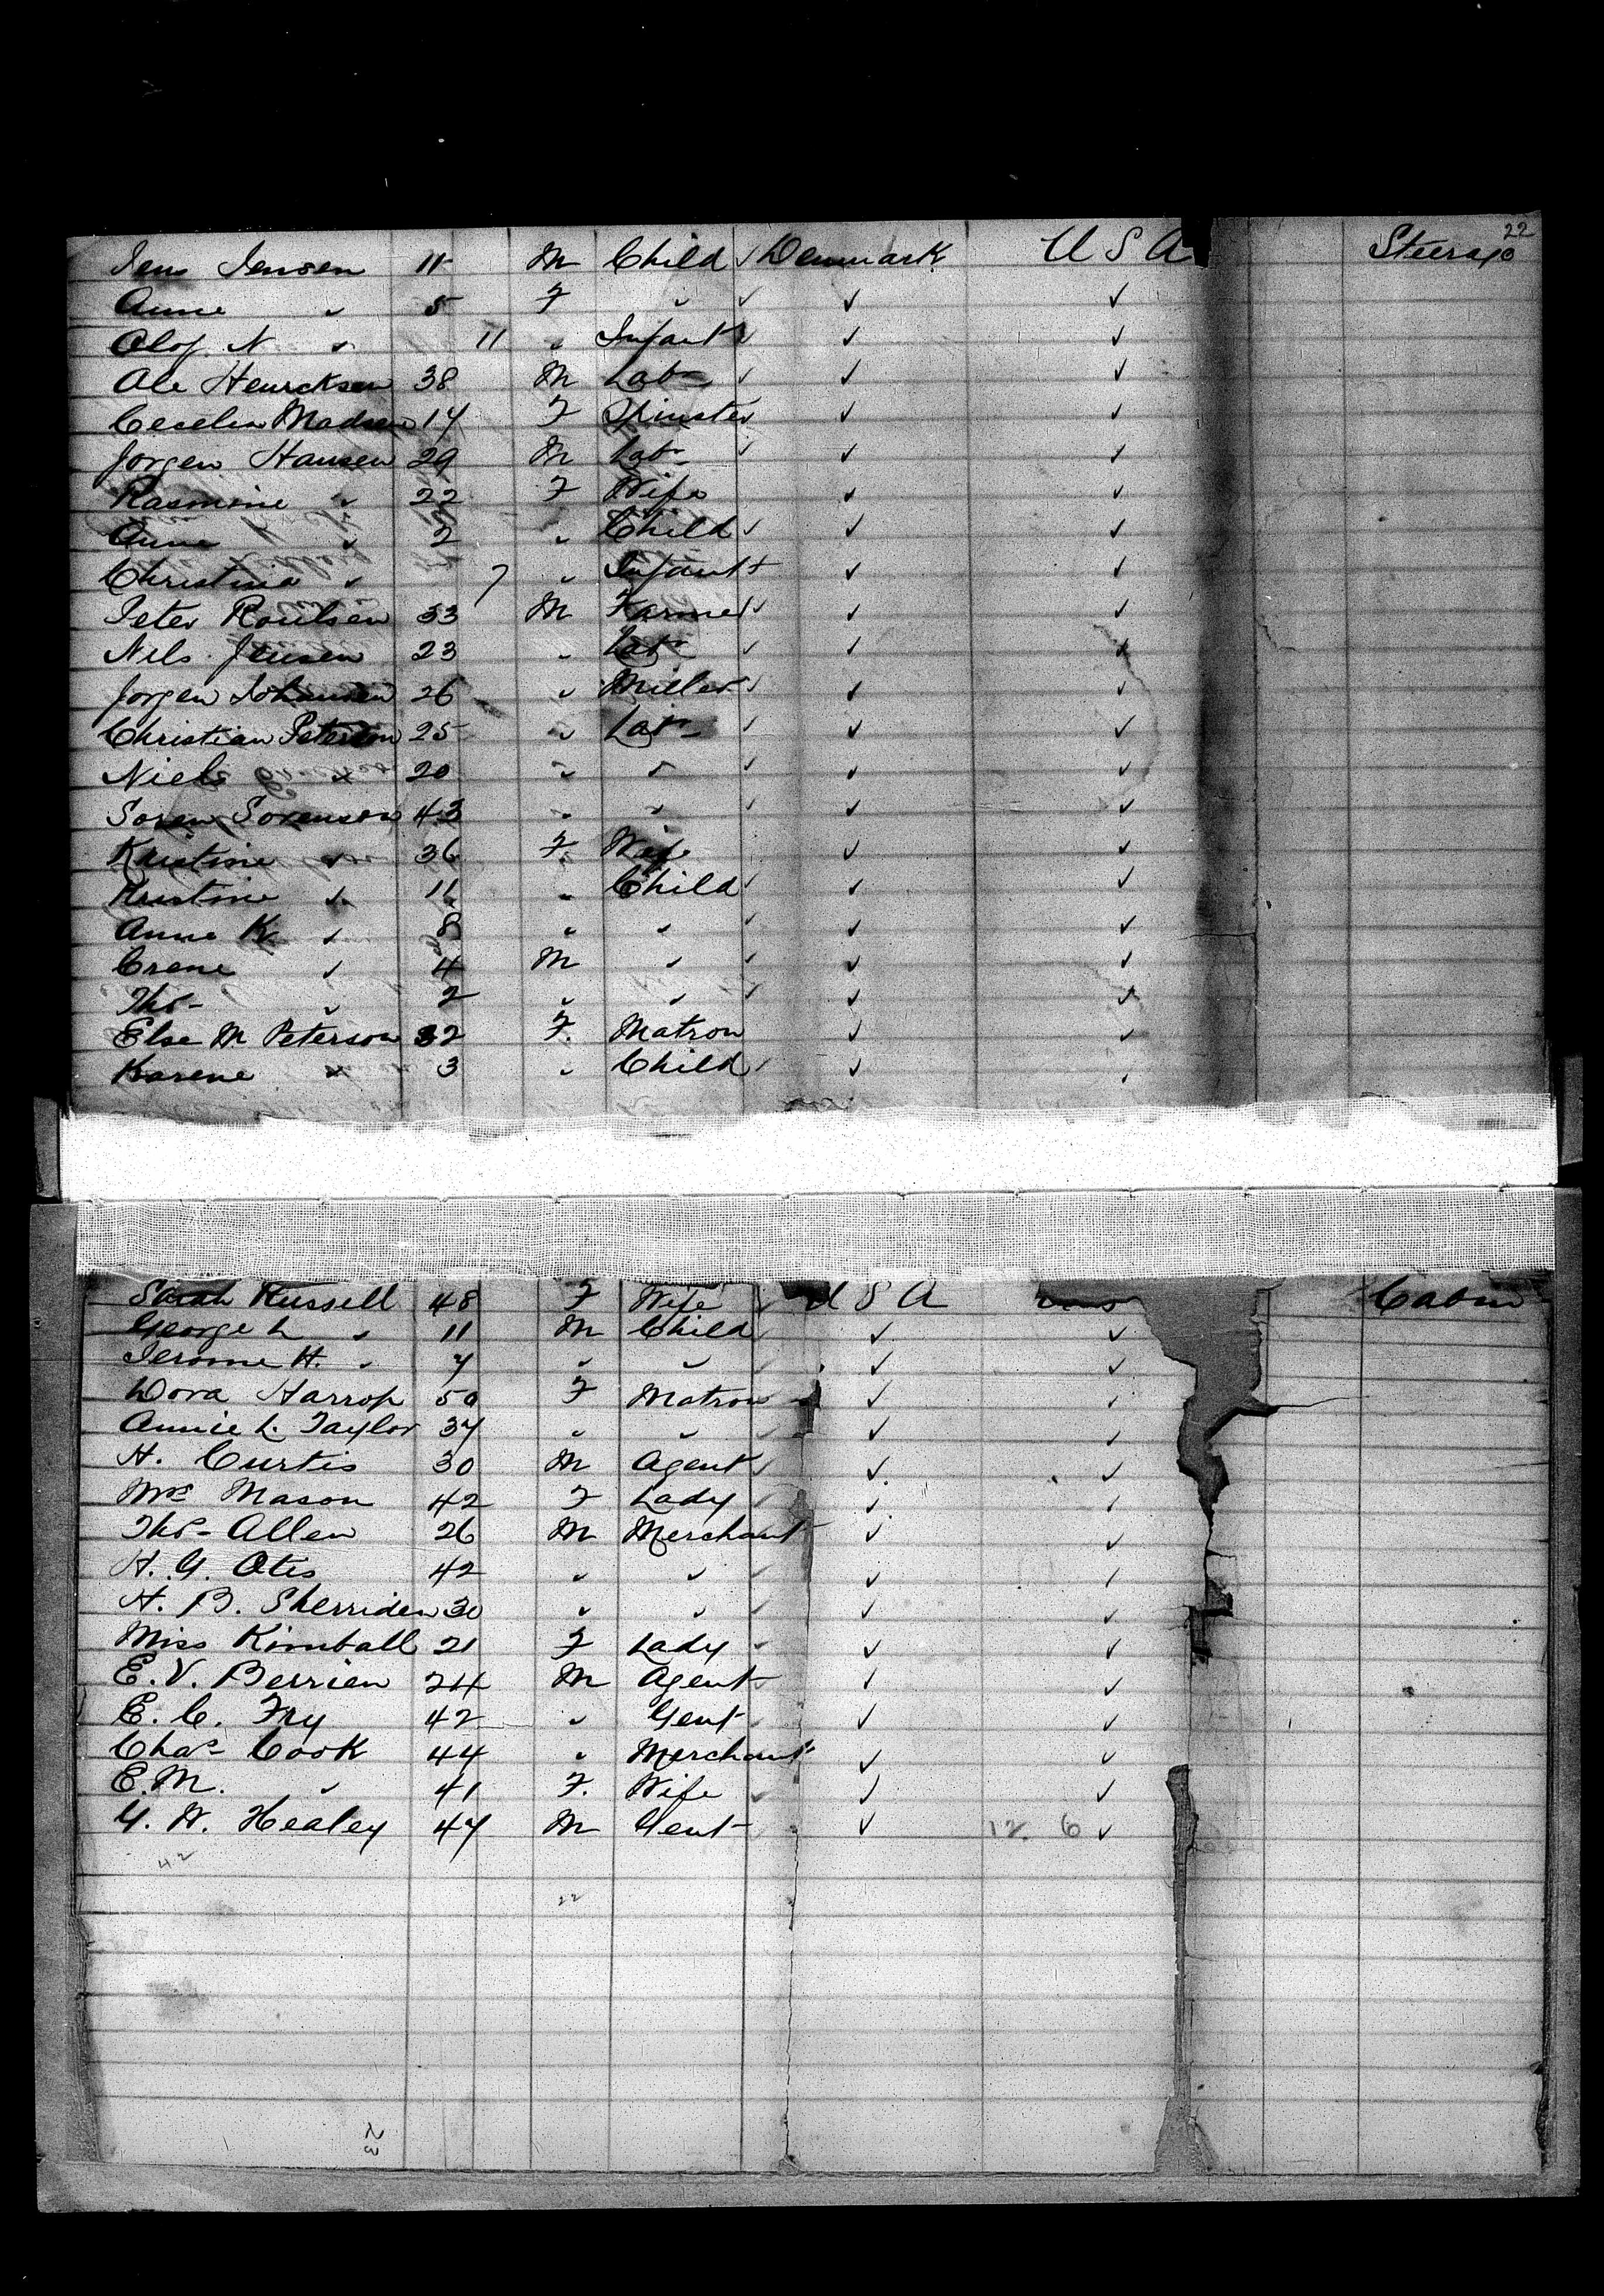 22
Jens Jensen 11 M Child ✓ Denmark U S A Steerage
Anne " 5 F " ✓ ✓ ✓
Olof N " 11 " Infant ✓ ✓ ✓
Ole Henricksen 38 M Labr ✓ ✓ ✓
Cecelia Madsen 14 F Spinster ✓ ✓
Jorgen Hansen 29 M Labr ✓ ✓ ✓
Rasmine " 22 F Wife ✓ ✓
Anne " 2 " Child ✓ ✓ ✓
Christina " 7 " Infant ✓ ✓
Peter Poulsen 33 M Farmer ✓ ✓ ✓
Nels Jensen 23 " Labr ✓ ✓ ✓
Jorgen Johansen 26 " Miller ✓ ✓ ✓
Christian Peterson 25 " Labr ✓ ✓ ✓
Niels " 20 " " ✓ ✓ ✓
Soren Sorenson 43 " " ✓ ✓ ✓
Kristine " 36 F Wife ✓ ✓
Kristine " 11 " Child ✓ ✓ ✓
Anne K " 8 " " ✓ ✓ ✓
" 4 M " ✓ ✓ ✓
Thos " 2 " " ✓ ✓ ✓
Else M Peterson 32 F. Matron ✓ ✓
Karene " 3 " Child ✓ ✓ ✓
Sarah Russell 48 F Wife ✓ U S A Cabin
George L " 11 M Child ✓ ✓ ✓
Jerome H. " 7 " " ✓ ✓ ✓
Dora Harrop 50 F Matron ✓ ✓
Annie L. Taylor 37 " " ✓ ✓ ✓
H. Curtis 30 M Agent ✓ ✓ ✓
Mrs Mason 42 F Lady ✓ ✓ ✓
Thos Allen 26 M Merchant ✓ ✓
H. G. Otis 42 " " ✓ ✓ ✓
H. B. Sherriden 30 " " ✓ ✓ ✓
Miss Kimball 21 F Lady ✓ ✓ ✓
E. V. Berrien 24 M Agent ✓ ✓ ✓
E. C. Fry 42 " Gent ✓ ✓ ✓
Chas Cook 44 " Merchant ✓ ✓
E. M. " 41 F. Wife ✓ ✓ ✓
G. W. Healey 47 M Gent ✓ 12. 6 ✓
42
22
23